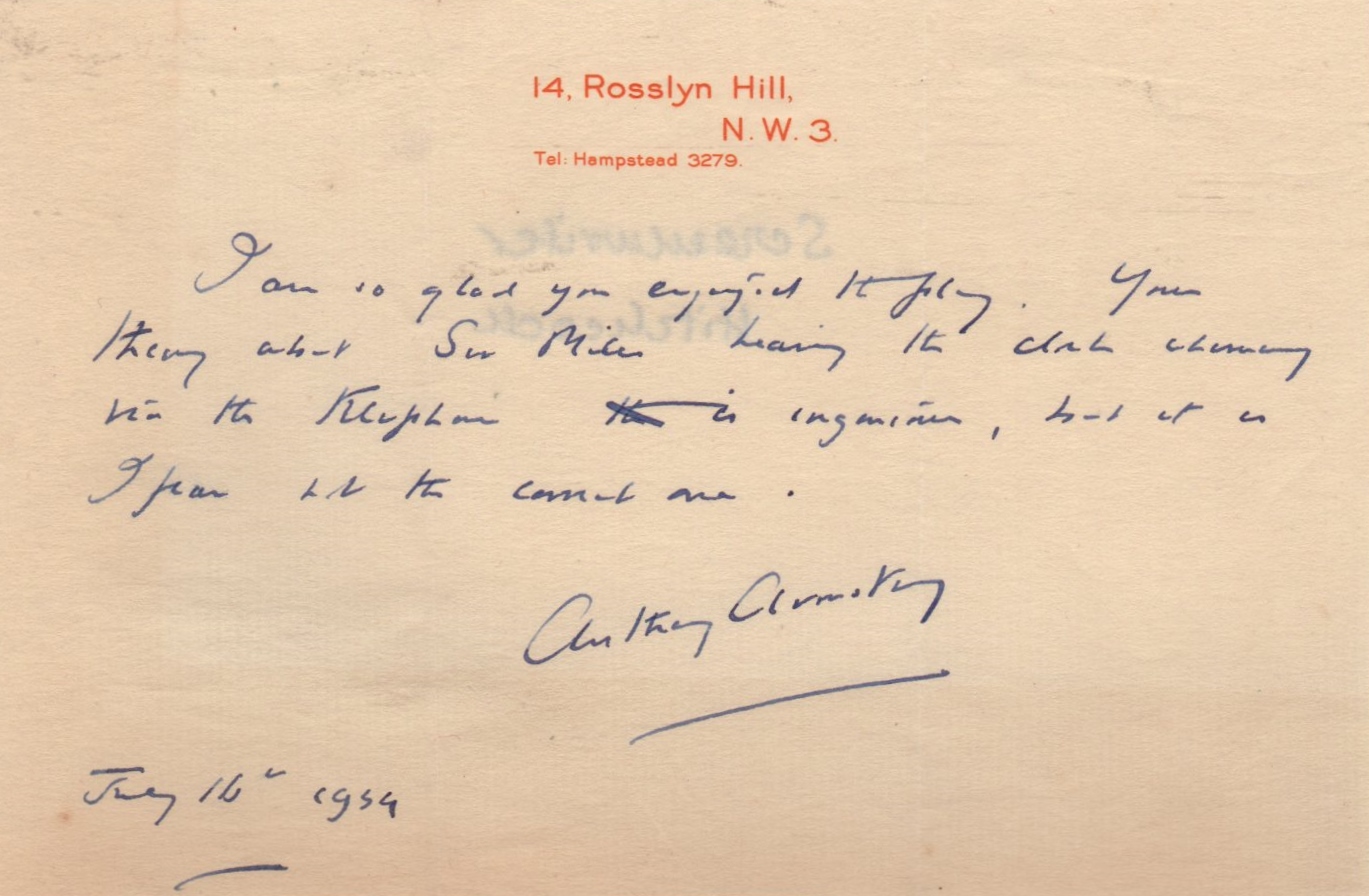 14, Rosslyn Hill,
N.W.3.
Tel: Hampstead 3279.
Screenwriter
I am so glad you enjoyed the play. Your
Hitchcock
theory about Sir Miles hearing the clock
via the telephone is ingenious, but it is
I fear not the correct one.
Anthony Armstrong
July 16th 1954